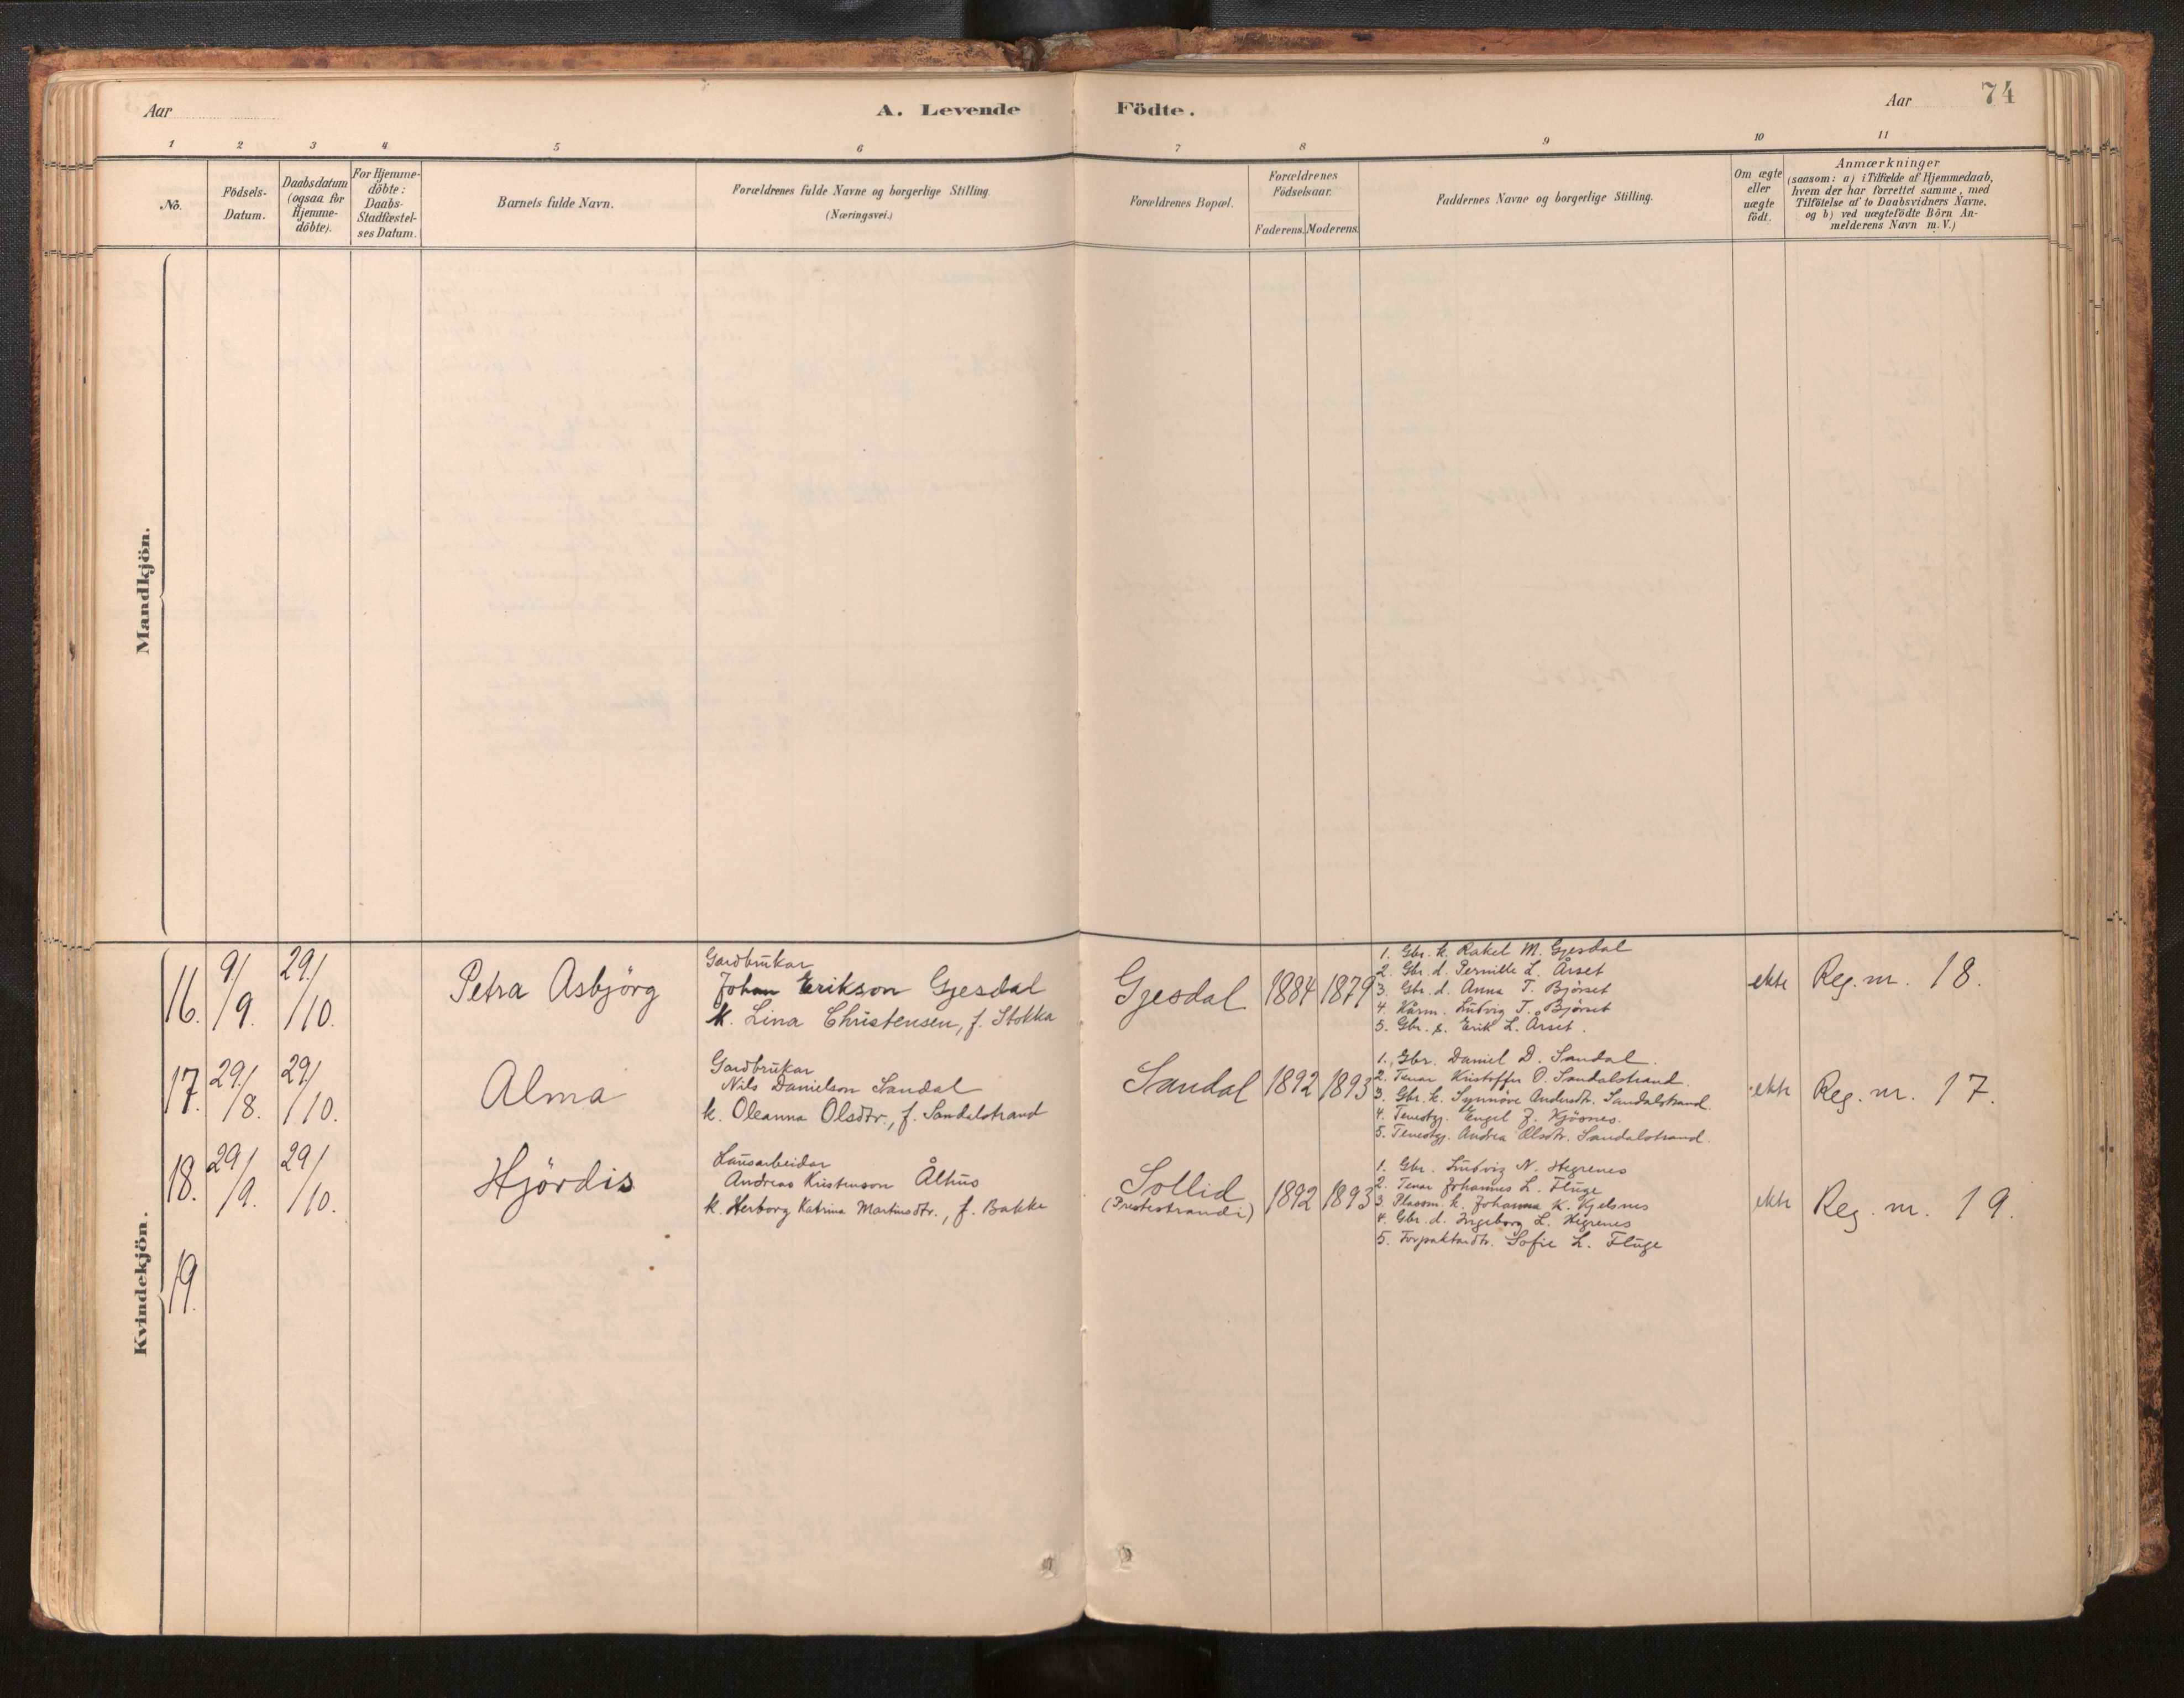 Aar
A. Levende
Födte.
Aar
74
1 2 3 4 5 6 7 8 9 10 11
No.
Födsels-
Datum.
Daabsdatum
(ogsaa for
Hjemme-
döbte).
For Hjemme-
döbte:
Daabs-
Stadfæstel-
ses Datum.
Barnets fulde Navn.
Forældrenes fulde Navne og borgerlige Stilling.
(Næringsvei.)
Forældrenes Bopæl.
Forældrenes
Födselsaar.
Faderens. Moderens.
Faddernes Navne og borgerlige Stilling.
Om ægte
eller
uægte
födt.
Anmærkninger
(saasom: a) i Tilfælde af Hjemmedaab,
hvem der har forrettet samme, med
Tilföielse af to Daabsvidners Navne,
og b) ved uægtefödte Börn An-
melderens Navn m. V.)
Mandkjön.
Kvindekjön.
16. 9/9. 29/10.
Petra Asbjörg
Gardbrukar
Johan Erikson Gjesdal
k. Lina Christensen, f. Stokka
Gjesdal
1884 1879
1. Gbr. k. Rakel M. Gjesdal
2. Gbr. d. Pernille L. Årset
3. Gbr. d. Anna T. Bjørset
4. Kårm. Ludvig T. Bjørset
5. Gbr. s. Erik L. Årset.
ekte
Reg. nr. 18.
17. 29/8. 29/10.
Alma
Gardbrukar
Nils Danielson Sandal
k. Oleanna Olsdtr., f. Sandalstrand
Sandal
1892 1893
1. Gbr. Daniel D. Sandal.
2. Tenar Kristoffer O. Sandalstrand.
3. Gbr. k. Synnöve Andersdtr. Sandalstrand.
4. Tenestgj. Engel J. Kjösnes.
5. Tenestgj. Andrea Olsdtr. Sandalstrand.
ekte
Reg. nr. 17.
18. 29/9. 29/10.
Hjördis
Lausarbeidar
Andreas Kristenson Ålhus
k. Herborg Katrina Martinsdtr., f. Bakke
Sollid
(Prestestrandi)
1892 1893
1. Gbr. Ludvig N. Hegrenes
2. Tenar Johannes L. Fluge
3. Plassm. k. Johanna K. Kjelsnes
4. Gbr. d. Ingeborg L. Hegrenes
5. Forpaktardtr. Sofie L. Fluge
ekte
Reg. nr. 19.
19.